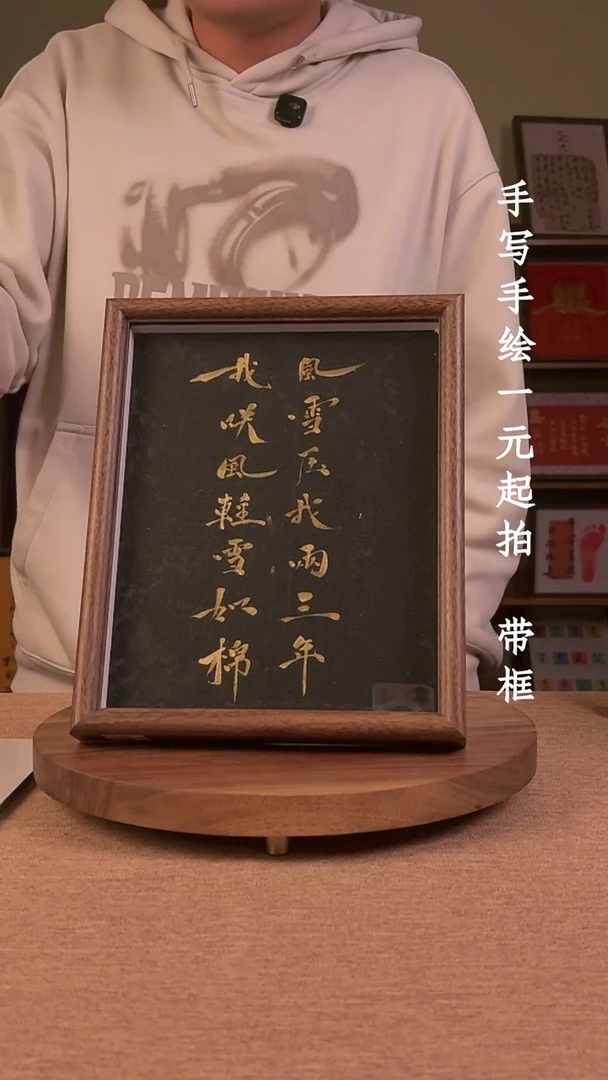 風雪压我兩三年
我咲風輕雪如棉
手写手绘一元起拍 带框